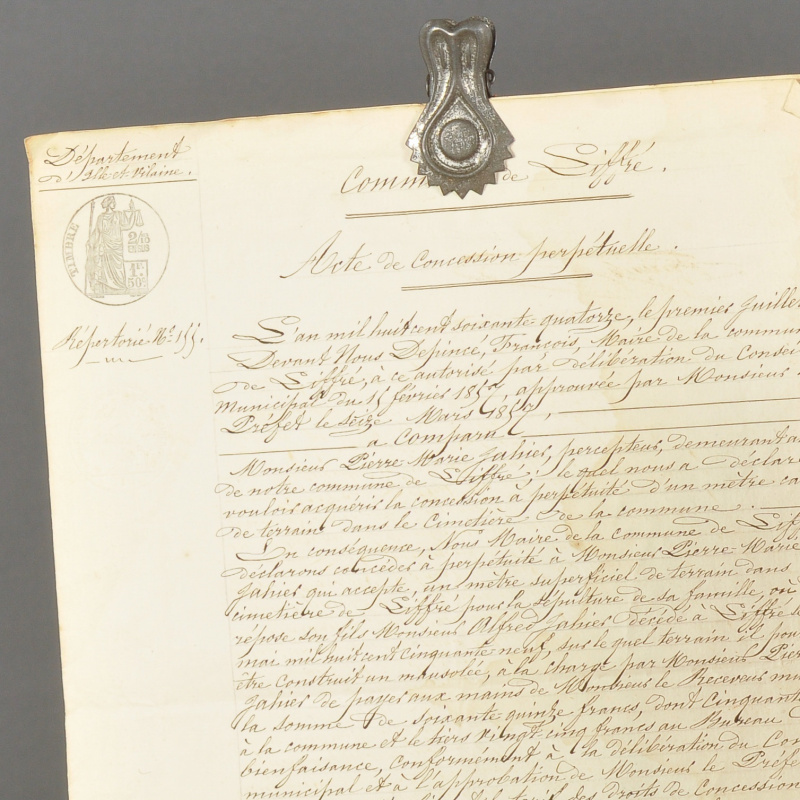 Département
d'Ille et Vilaine.
Comm de Liffré.
TIMBRE
2/10
EN SUS
1 FR
50 C
Acte de concession perpétuelle.
Répertorié No. 155.
L'an mil huit cent soixante-quatorze, le premier Juille
Devant Nous Depincé, François, Maire de la commun
de Liffré, à ce autorisé par délibération du Consei
Municipal du 15 février 185, approuvée par Monsieur
Préfet le seize Mars 1857,
a comparu
Monsieur Pierre-Marie Jahier, percepteur, demeurant a
de notre commune de Liffré; le quel nous a déclaré
vouloir acquérir la concession à perpétuité d'un mètre ca
de terrain dans le Cimetière de la commune.
En conséquence, Nous Maire de la commune de Liff
déclarons concéder à perpétuité à Monsieur Pierre-Marie
Jahier qui accepte, un mètre superficiel de terrain dans
cimetière de Liffré pour la sépulture de sa famille, où
repose son fils Monsieur Alfred Jahier décédé à Liffré
mai mil huit cent cinquante neuf, sur le quel terrain il pour
être construit un mausolée, à la charge par Monsieur Pier
Jahier de payer aux mains de Monsieur le Receveur mu
la somme de soixante quinze francs, dont cinquant
à la commune et le tiers vingt cinq francs au Bureau
bienfaisance, conformément à la délibération du Con
municipal et à l'approbation de Monsieur le Préfe
tarif des droits de Concession